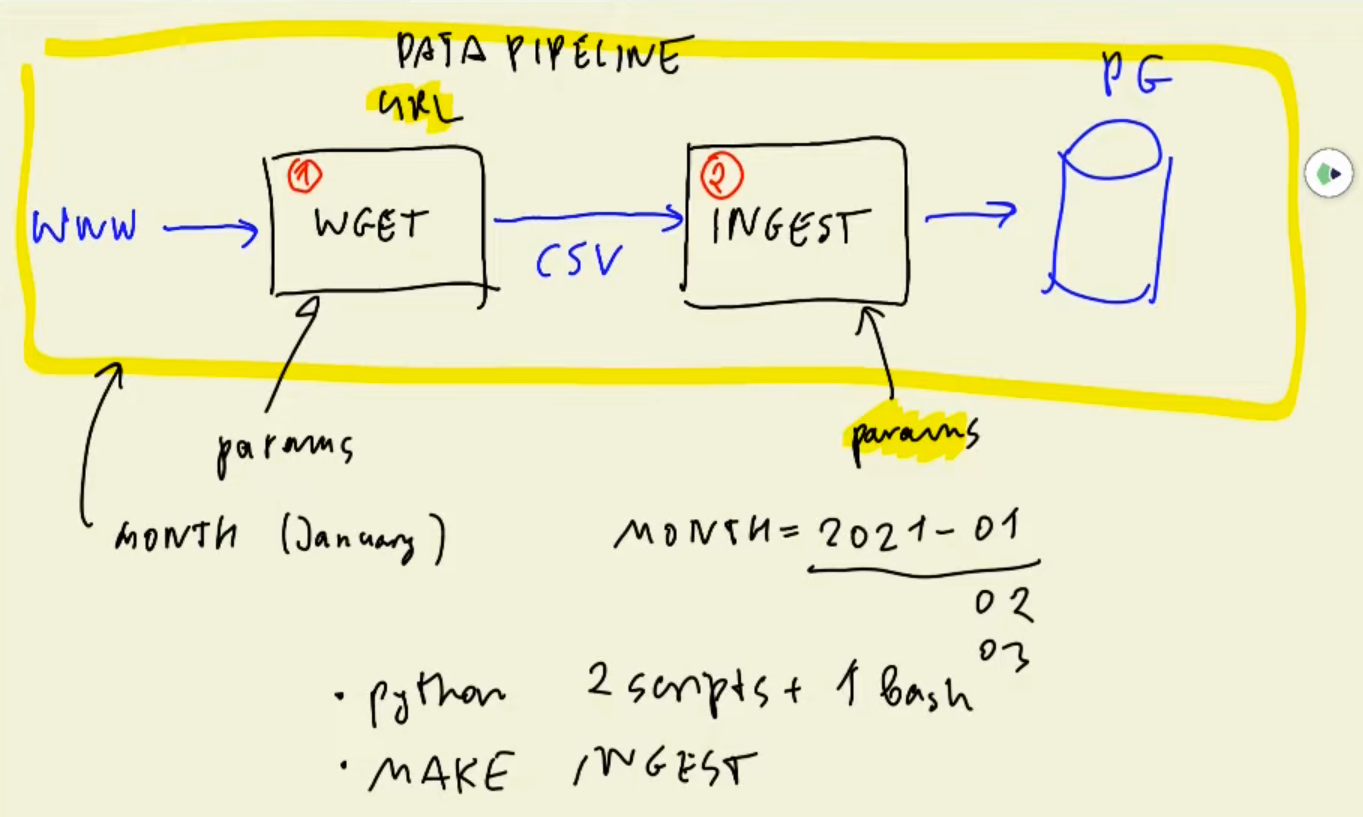 DATA PIPELINE
URL
PG
① WGET
② INGEST
WWW
CSV
params
params
MONTH (January)
MONTH = 2021-01
02
03
• python 2 scripts + 1 bash
• MAKE INGEST